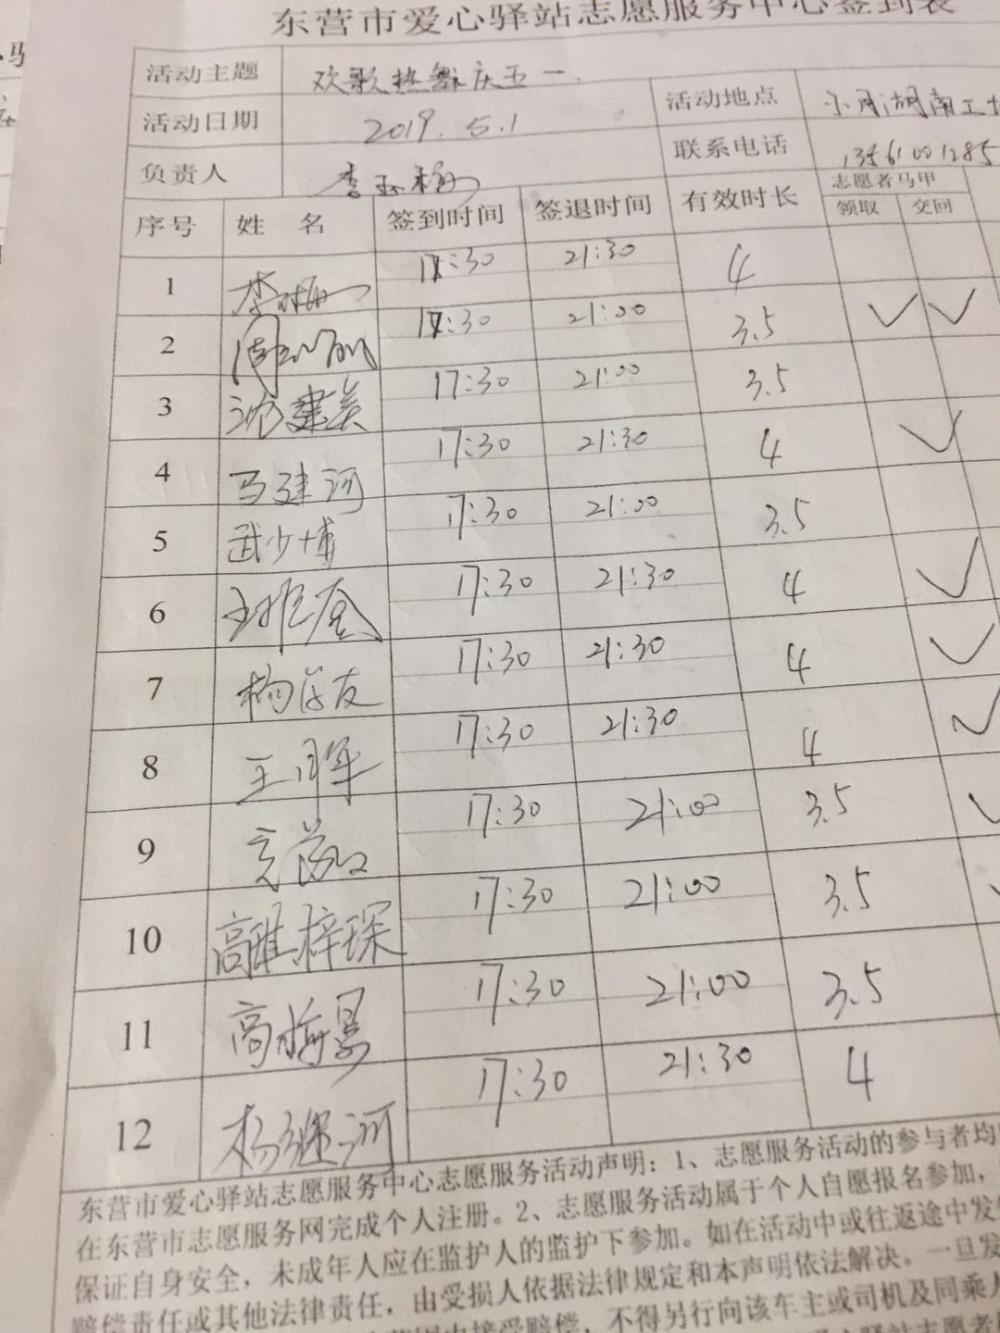 东营市爱心驿站志愿服务中心签到表
活动主题 欢歌热舞庆五一
活动日期 2019.5.1 活动地点
负责人 联系电话 13561001285
序号 姓 名 签到时间 签退时间 有效时长 志愿者马甲
领取 交回
1 17:30 21:30 4
2 17:30 21:00 3.5 ✓ ✓
3 沈建美 17:30 21:00 3.5
4 马建河 17:30 21:30 4 ✓
5 武少博 17:30 21:00 3.5
6 17:30 21:30 4 ✓
7 杨学友 17:30 21:30 4 ✓
8 王月军 17:30 21:30 4 ✓
9 17:30 21:00 3.5 ✓
10 高雅梓琛 17:30 21:00 3.5
11 高梅景 17:30 21:00 3.5
12 杨继河 17:30 21:30 4
东营市爱心驿站志愿服务中心志愿服务活动声明：1、志愿服务活动的参与者均
在东营市志愿服务网完成个人注册。2、志愿服务活动属于个人自愿报名参加，
保证自身安全，未成年人应在监护人的监护下参加。如在活动中或往返途中发
赔偿责任或其他法律责任，由受损人依据法律规定和本声明依法解决。一旦发
接受赔偿，不得另行向该车主或司机及同乘人